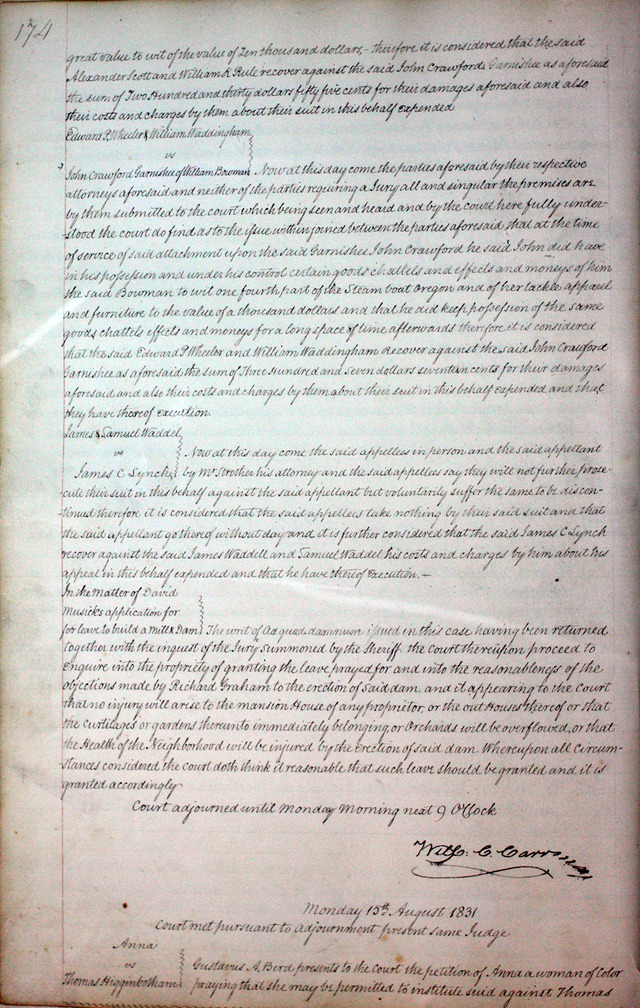 174
great value to wit of the value of Ten thousand dollars,- therefore it is considered that the said
Alexander Scott and William K Rule recover against the said John Crawford Garnishee as aforesaid
the sum of Two Hundred and thirty dollars fifty five cents for their damages aforesaid and also
their costs and charges by them about their suit in this behalf expended
Edward P. Wheeler & William Waddingham
vs
John Crawford Garnishee of William Bowman Now at this day come the parties aforesaid by their respective
attorneys aforesaid and neither of the parties requiring a Jury all and singular the premises are
by them submitted to the court which being seen and heard and by the court here fully under-
stood the court do find as to the issue within joined between the parties aforesaid, that at the time
of service of said attachment upon the said Garnishee John Crawford he said John did have
in his possession and under his control certain goods chattels and effects and moneys of him
the said Bowman to wit one fourth part of the Steam boat Oregon and of her tackle apparel
and furniture to the value of a thousand dollars and that he did keep possession of the same
goods chattels effects and moneys for a long space of time afterwards therefore it is considered
that the said Edward P Wheeler and William Waddingham Recover against the said John Crawford
Garnishee as aforesaid the sum of Three Hundred and Seven dollars seventeen cents for their damages
aforesaid and also their costs and charges by them about their suit in this behalf expended and that
they have thereof execution.
James & Samuel Waddel
vs Now at this day come the said appellees in person and the said appellant
James C Lynch by Mr Strother his attorney and the said appellees say they will not further prose-
cute their suit in this behalf against the said appellant but voluntarily suffer the same to be discon-
tinued therefore it is considered that the said appellees take nothing by their said suit and that
the said appellant go thereof without day and it is further considered that the said James C Lynch
recover against the said James Waddell and Samuel Waddel his costs and charges by him about his
appeal in this behalf expended and that he have thereof execution. -
In the matter of David
Musick's application for
for leave to build a Mill & Dam The writ of Ad quod damnum issued in this case having been returned
together with the inquest of the Jury summoned by the Sheriff. the court thereupon proceed to
Enquire into the propriety of granting the leave prayed for and into the reasonableness of the
objections made by Richard Graham to the erection of said dam. and it appearing to the Court
that no injury will arise to the mansion House of any proprietor, or the out Houses thereof or that
the curtilages or gardens thereunto immediately belonging, or Orchards will be overflowed, or that
the Health of the Neighborhood will be injured by the Erection of said dam. Whereupon all Circum-
stances considered the court doth think it reasonable that such leave should be granted and it is
granted accordingly
Court adjourned until Monday Morning next 9 O'Clock
Monday 15th August 1831
Court met pursuant to adjournment present same Judge
Anna
vs Gustavus A. Bird presents to the Court the petition of Anna a woman of Color
Thomas Higginbotham praying that she may be permitted to institute suid against Thomas